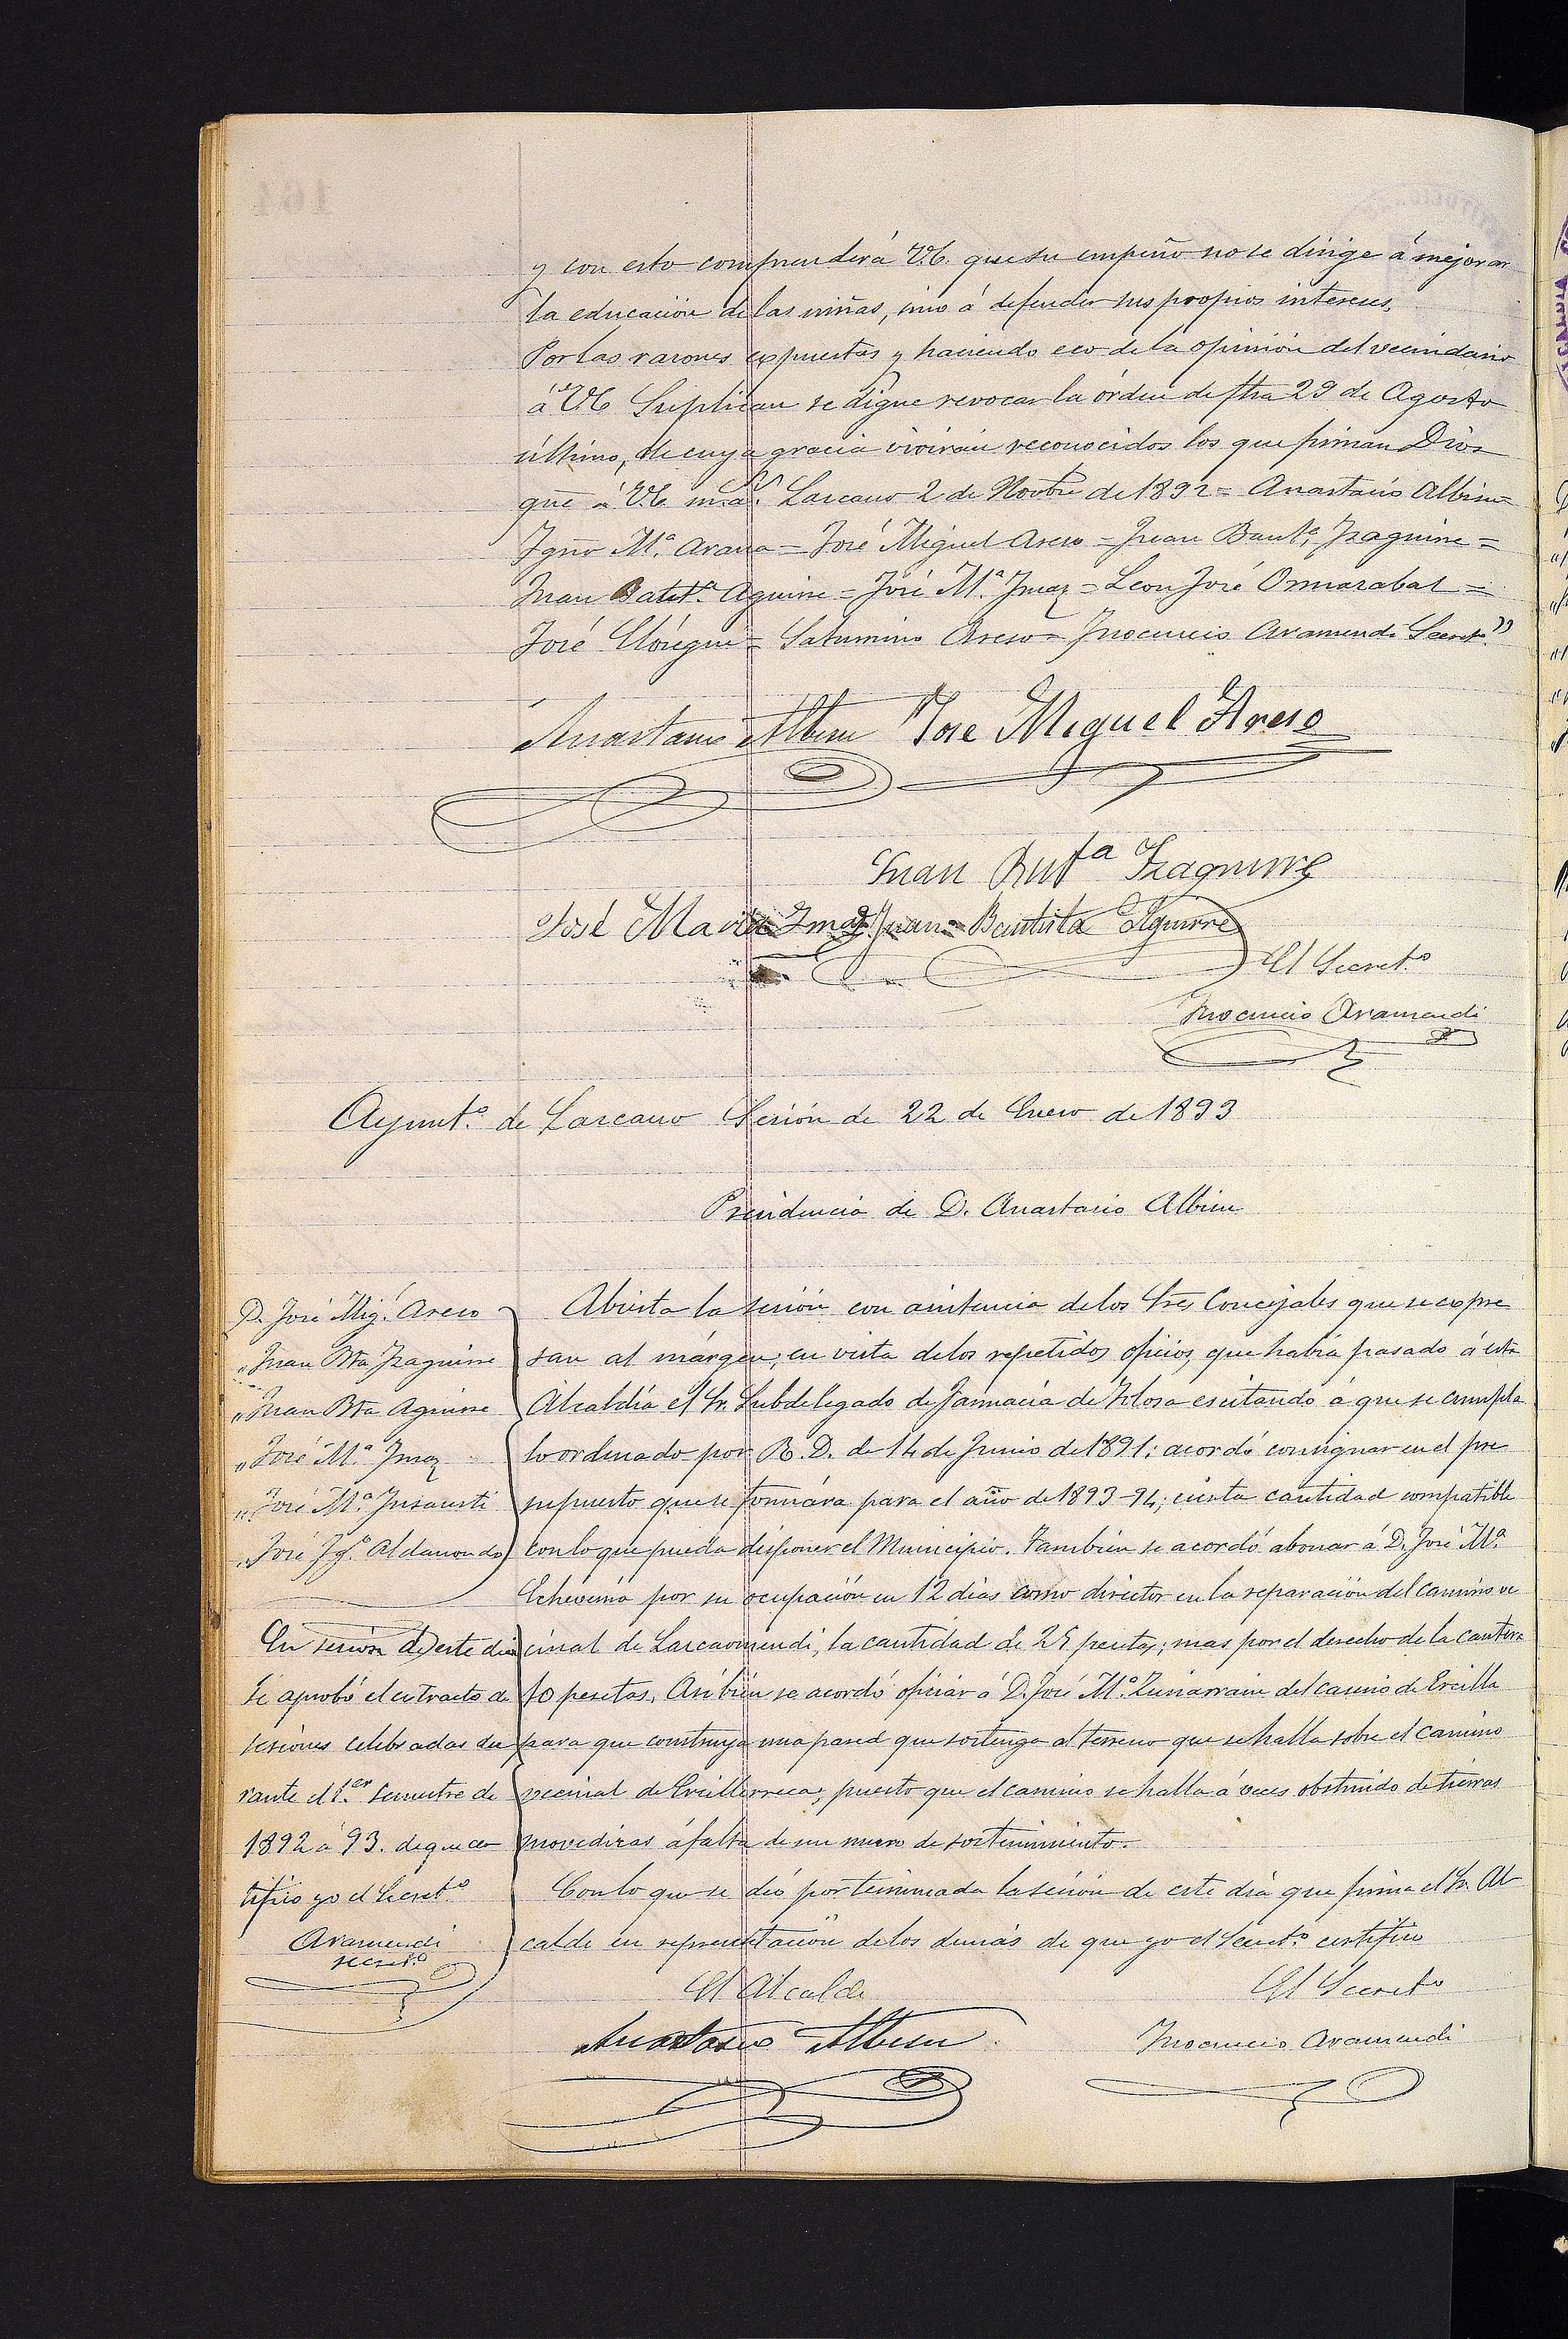 y con esto comprenderá V.E. que su empeño no se dirige á mejorar
la educación de las niñas, sino á defender sus propios intereses.
Por las razones expuestas y haciendo eco de la opinión del vecindario
á V.E. Suplican se digne revocar la órden de fha 29 de Agosto
último, de cuya gracia vivirán reconocidos los que firman Dios
gue á V.E. m.s a.s Lazcano 2 de Novbre de 1892 = Anastasio Albisu =
Igno M.ª Arana = José Miguel Areso = Juan Baut.ª Izaguirre =
Juan Batt.ª Aguirre = José M.ª Imaz = Leon José Ormazabal =
José Elósegui = Saturnino Areso = Inocencio Aramendi Secret.º"
Anastasio Albisu Jose Miguel Areso
Juan But.ª Izaguirre
José Maria Imaz Juan Bautista Aguirre
El Secret.º
Inocencio Aramendi
Ayunt.º de Lazcano Sesión de 22 de Enero de 1893
Presidencia de D. Anastasio Albisu
D. José Mig.l Areso
" Juan Bta Izaguirre
" Juan Bta Aguirre
" José M.ª Imaz
" José M.ª Insausti
" José Ig.º Aldanondo
En sesión de este dia
se aprobó el extracto de
sesiones celebradas du
rante el 1.er semestre de
1892 á 93. de que cer
tifico yo el Secret.º
Aramendi
secret.º
Abierta la sesión con asistencia de los Sres Concejales que se expre
san al márgen; en vista de los repetidos oficios, que había pasado á esta
Alcaldía el Sr. Subdelegado de Farmacia de Tolosa escitando á que se cumpla
lo ordenado por R. D. de 14 de Junio de 1891; acordó consignar en el pre
supuesto que se formára para el año de 1893-94; cierta cantidad compatible
con lo que pueda disponer el Municipio. También se acordó abonar á D. José M.ª
Echeverria por su ocupación en 12 dias como director en la reparación del camino ve
cinal de Lazcaomendi, la cantidad de 25 pesetas; mas por el derecho de la cantera
10 pesetas. Asi bién se acordó oficiar á D. José M.ª Zuriarrain del caserio de Ercilla
para que construya una pared que sostenga al terreno que se halla sobre el camino
vecinal de Ercillerreca; puesto que el camino se halla á veces obstruido de tierras
movedizas á falta de un muro de sostenimiento.
Con lo que se dió por terminada la sesión de este dia que firma el Sr. Al
calde en representación de los demás de que yo el Secret.º certifico
El Alcalde
El Secret.º
Anastasio Albisu
Inocencio Aramendi